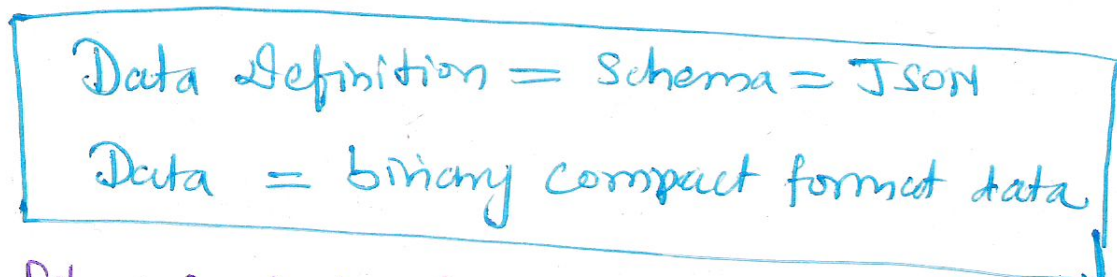 Data Definition = Schema = JSON
Data = binary compact format data